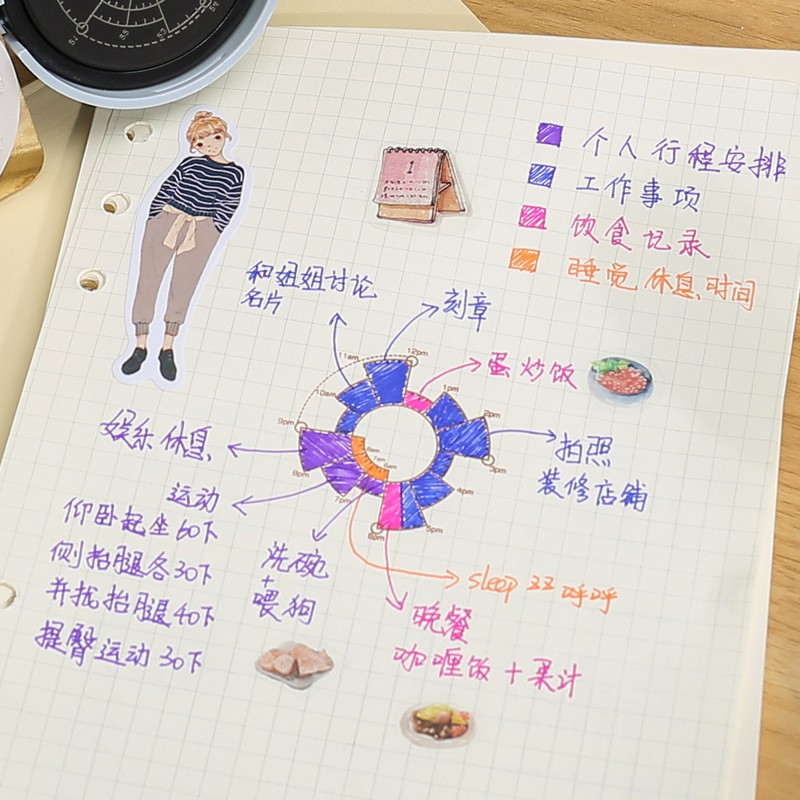 个人行程安排
工作事项
饮食记录
睡觉休息时间
和姐姐讨论
名片
刻章
蛋炒饭
11am
12pm
10am
1pm
2pm
9pm
3pm
8pm
8am
7am
6am
7pm
4pm
5pm
6pm
娱乐休息
拍照
装修店铺
运动
仰卧起坐60下
侧抬腿各30下
并拢抬腿40下
提臀运动30下
洗碗
+
喂狗
sleep zz 呼呼
晚餐
咖喱饭+果汁